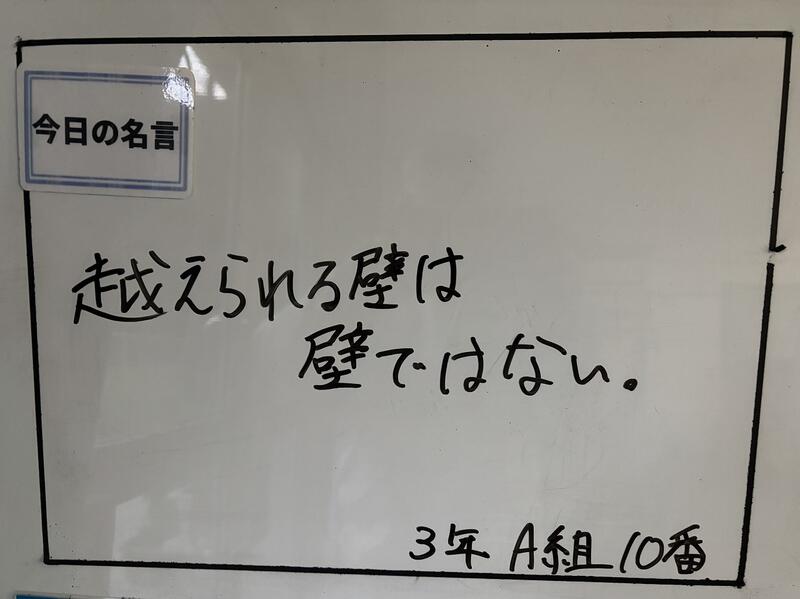 今日の名言
越えられる壁は
壁ではない。
3年 A組 10番